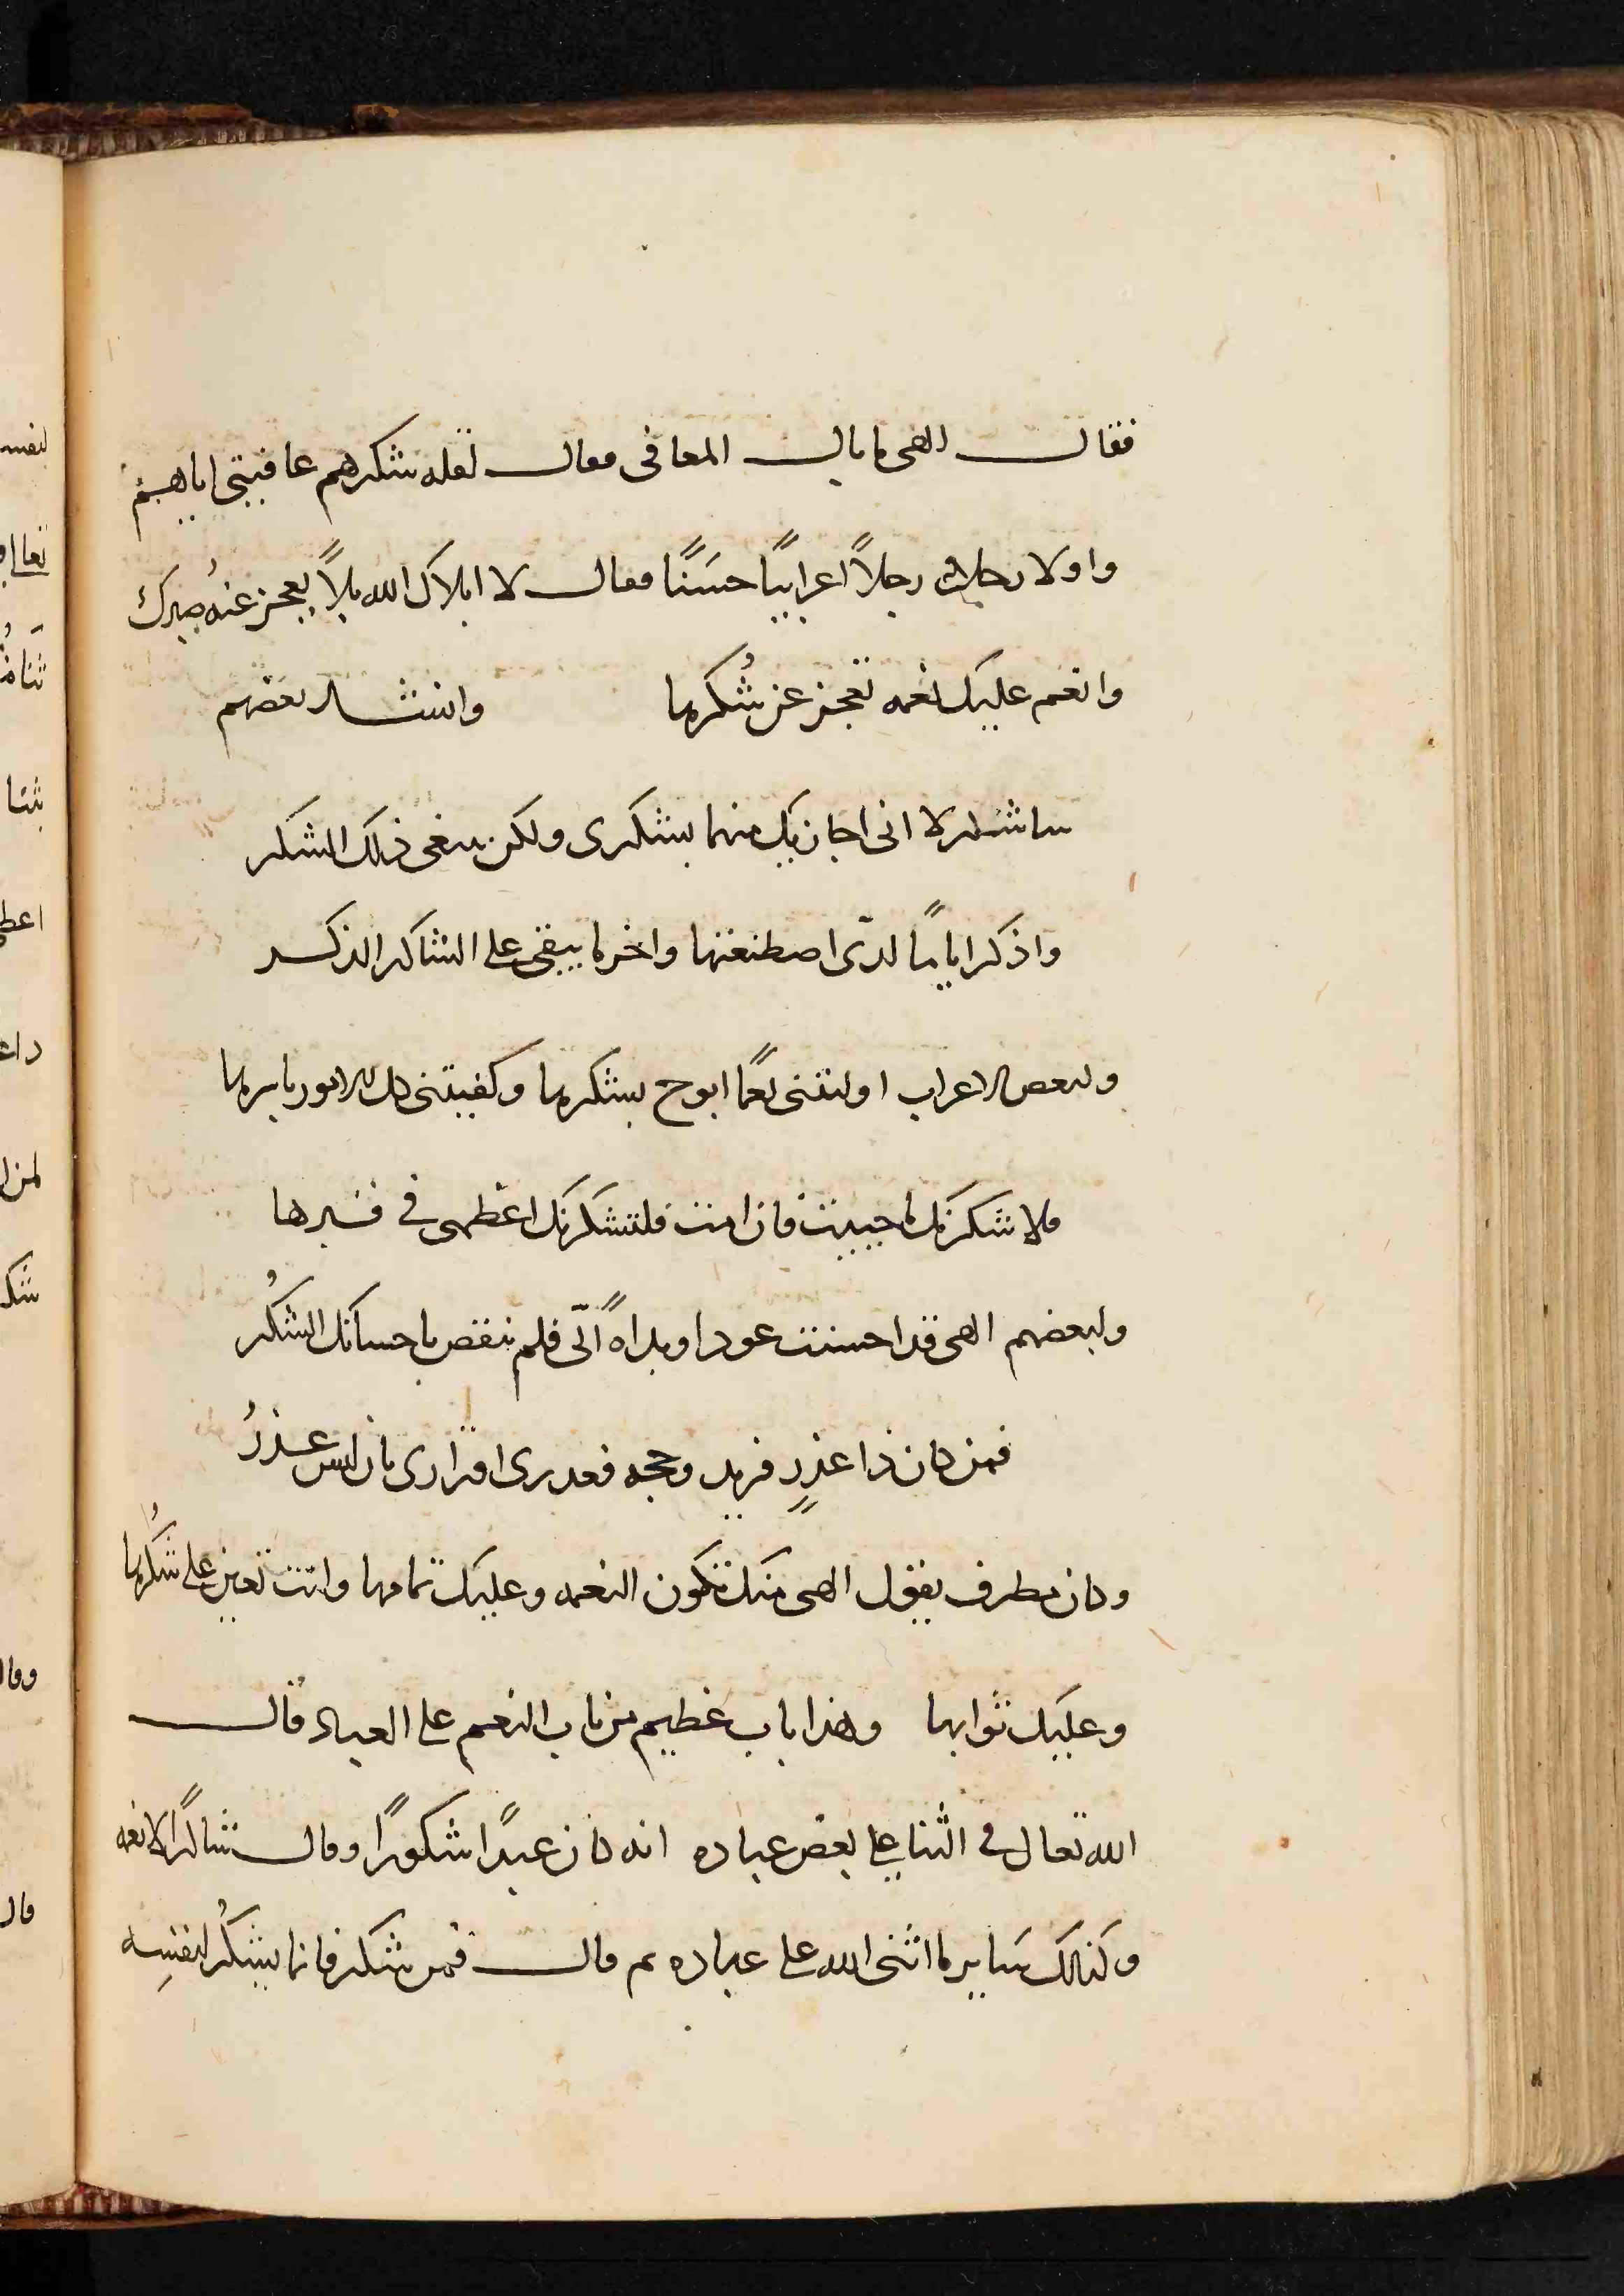 فقال الهى ما بال المعافى فقال لقله شكرهم عافيتى اياهم
واولا رجلا اعرابيا حسنًا فقال لا ابلاك الله بلاً يعجز عنه صبرك
وانعم عليك نعمه تعجز عن شُكرها وانشد بعضهم
ساشكر لا انى اجازيك منعما بشكرى ولكن ينبغى ذلك الشكر
واذكر اياما لدىّ اصطنعتها واخر ما يبقى على الشاكر الذكر
ولبعض الاعراب اوليتنى نعمًا ابوح بشكرها وكفيتنى كل الامور باسرها
فلاشكرنك ما حييت فان امت فلتشكرنك اعظمى فى قبرها
ولبعضهم الهى قد احسنت عودا وبداهً الىّ فلم ينهض باحسانك الشكُر
فمن كان ذا عذرٍ فريد وحجه فعذرى اقرارى بان ليس عذرُ
وكان مطرف يقول الهى منك تكون النعمه وعليك تمامها وانت تعين على شُكرها
وعليك ثوابها وهذا باب عظيم من باب النعم على العباد قال
الله تعالى فى الثنا على بعض عباده انه كان عبدًا شكورًا وقال شاكرًا لانعمه
وكذلك سَاير ما اثنى الله على عباده ثم قال فمن شكر فانما يشكُر لنفسِه